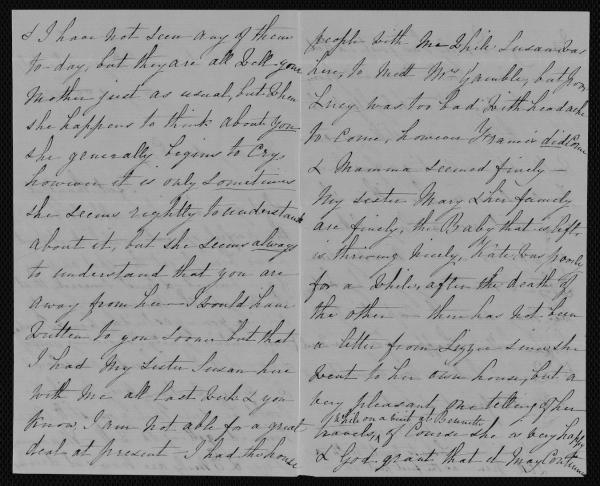 & I have not seen any of them
to-day, but they are all well - your
Mother just as usual, but when
she happens to think about you
she generally begins to cry,
however it is only sometimes
she seems rightly to understand
about it, but she seems always
to understand that you are
away from her - I would have
written to you sooner but that
I had my sister Susan here
with me all last week & you
know I am not able for a great
deal at present - I had the house
people with me while Susan was
here, to meet Mrs Gamble, but poor
Lucy was too bad with headache
to come, however Francis did come
& Mamma seemed finely -
My sister Mary & her family
are finely, the Baby that is left
is thriving nicely, Kate was poorly
for a while, after the death of
the other - there has not been
a letter from Lizzie since she
went to her own house, but a
very pleasant one telling of her
travels, while on a visit at
of course she is very happy
& God grant that it may continue